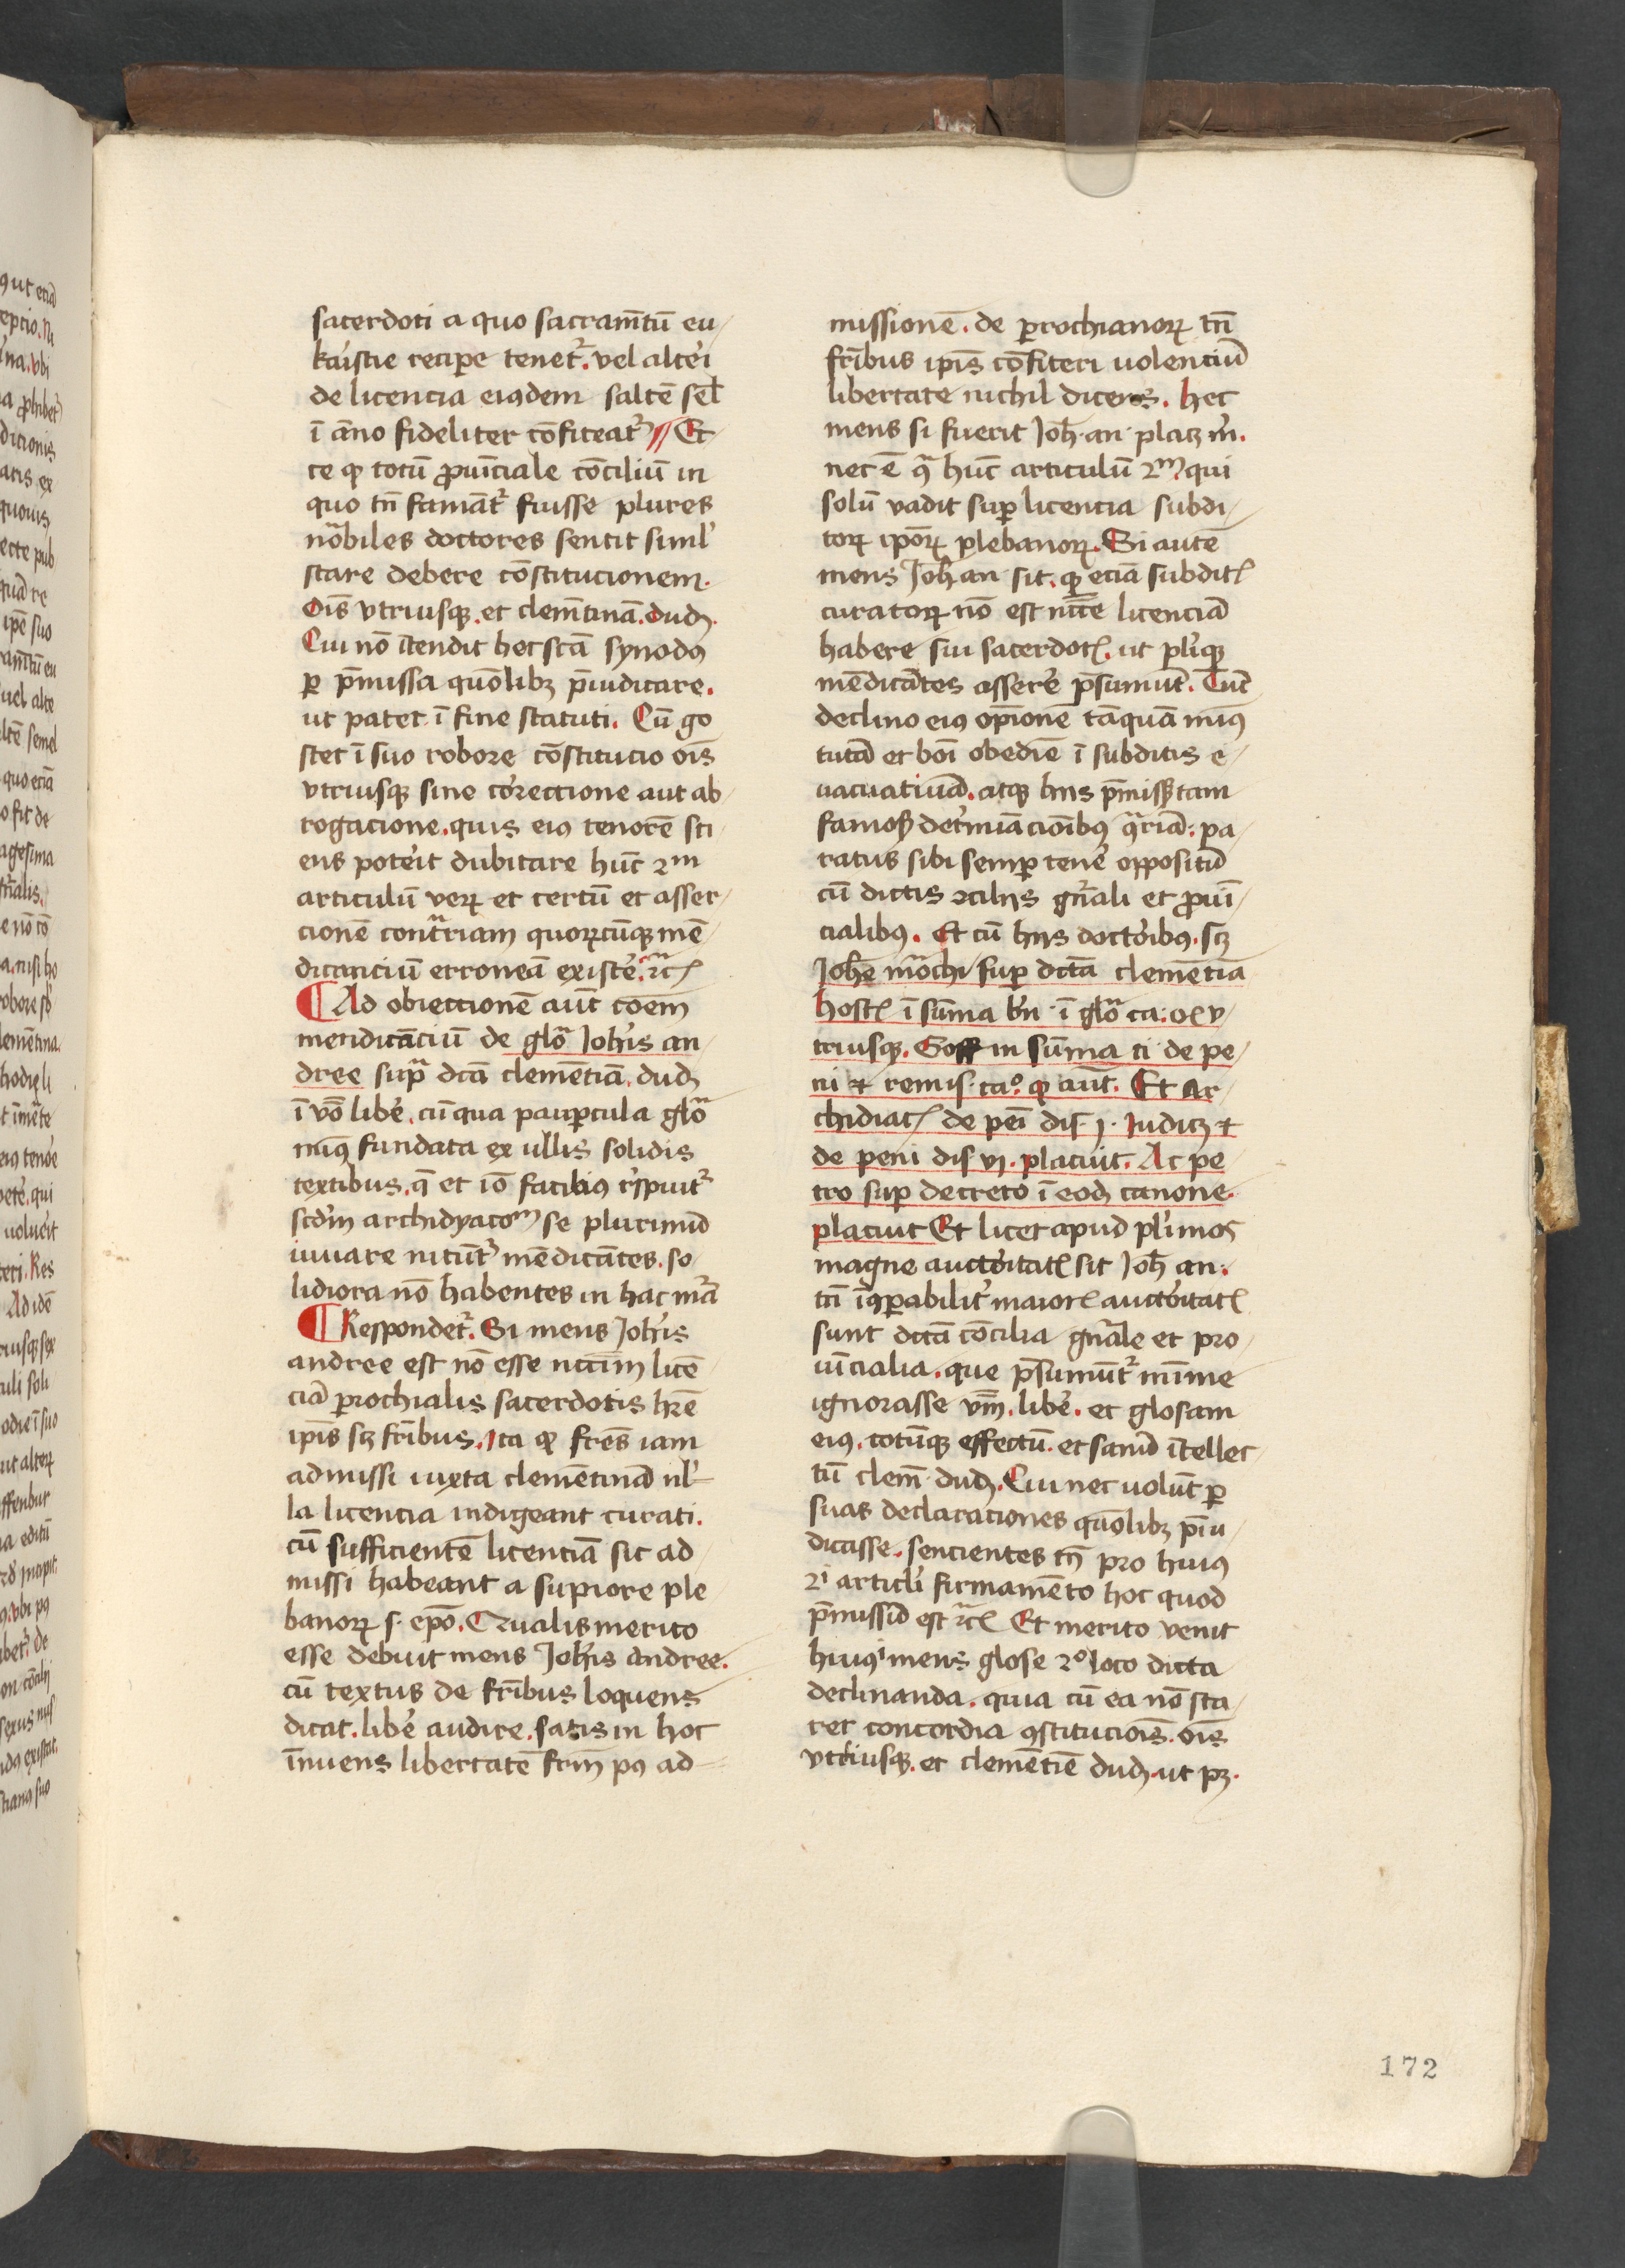 sacerdoti a quo sacramᷠtū eu-
karistie recipe tenetᷣ. vel alteri
de licencia eiꝰdem saltē sel̄
ī anno fideliter cōfiteatᷣ // Et
ce ꝙ totū ꝓuīciale cōciliū in
quo tn̄ famāt᷑ fuisse plures
nobiles doctores sentit simil'
stare debere cōstitucionem.
Oīs vtriusqꝫ. et clemētinā. dudꝫ.
Cui nō ītendit hec scā synodꝰ
ꝑ p̄missa quōlibꝫ p̄iudicare.
ut patet ī fine statuti. Cū gͦ
stet ī suo robore cōstitucio oīs
vtriusqꝫ sine correctione aut ab
rogacione. quis eiꝰ tenorē sci
ens poterit dubitare hūc 2m
articulū veꝝ et certū et asser-
cionē cont̃riam quoꝝcūqꝫ mē-
dicanciū erroneā existere. ꝛc̃
Ad obiectionē aut̄ cōem
mendicāciū de glo᷑ Joh̄is an-
dree sup̃ dcā clemētiā. dudꝫ
ī vo libere. cū qua paupꝑcula glo᷑
minꝰ fundata ex ullis solidis
textibus. q̄ et iō faciliꝰ respuit᷑
scdm archidyacom se plurimū
iuuare nitūt᷑ mēdicātes. so-
lidiora nō habentes in hac mā
Respondet᷑. Si mens Joh̄is
andree est nō esse nccīm licē-
ciā ꝑrochialis sacerdotis hr̄e
ip̄is scꝫ fr̄ibus. Ita ꝙ fres iam
admissi iuxta clemētinā nl'-
la licencia indigeant curati.
cū sufficientē licenciā sic ad-
missi habeant a supiore ple-
banoꝝ s. epō. Qualis merito
esse debuit mens Joh̄is andree.
cū textus de fr̄ibus loquens
dicat. libere audire. satis in hoc
īnuens libertatē frm̄ pꝰ ad-
missionē. de ꝑrochianoꝝ tn̄
fr̄ibus ip̄is cōfiteri uolenciū
libertate nichil dicens. hec
mens si fuerit Joh̄. an. placꝫ m̄.
nec ē q̃ hūc articulū 2m. qui
solū vadit suꝑ licencia subdi-
toꝝ ip̄oꝝ plebanoꝝ. Si autē
mens Joh̄ an sit. ꝙ eciā subditꝭ
curatoꝝ nō est nccē licenciā
habere sui sacerdotꝭ. ut pleriqꝫ
mēdicātes asserere p̄sumūt. Tūc
declino eiꝰ opīonē tāquā minꝰ
tutā et boī obediē ī subditis e-
uacuatiuā. atqꝫ hiis p̄miss tam
famos determiacionībꝰ q̃riā. pa-
ratus sibi semꝑ tenere oppositū
cū dictis ꝯciliis gn̄ali et ꝓuī-
cialibꝰ. Et cū hiis doctoribꝰ. scꝫ
Joh̄e mōchi suꝑ dictā clemētiā
hostꝭ ī sūma bn̄ ī glo᷑ ca: oīs v-
triusqꝫ. Goff in sūma ti de pe-
ni et remis. caº. ꝙ aut̄. Et Ar-
chidiacꝭ de peī dis. j. Iudicꝫ et
de peni dis vj. placuit. Ac pe-
tro suꝑ decreto ī eodꝫ canone.
placuit Et licet apud plīmos
magne auctoritatꝭ sit Joh̄ an.
tn̄ īꝯꝑabilit̓ maiorꝭ auctoritatꝭ
sunt dictā cōcilia gn̄ale et pro
uīcialia. que p̄sumūt᷑ mīme
ignorasse vm̄. libere. et glosam
eiꝰ. totūqꝫ effectū. et sanū ītellec-
tū clem̄. dudꝫ. Cui nec uolūt ꝑ
suas declaraciones quōlibꝫ p̄iu-
dicasse. sencientes tn̄ pro huiꝰ
2i articuli firmamēto hoc quod
p̄missū est ꝛc̃ Et merito venit
huiꝰi mens glose 2º loco dicta
declinanda. quia cū ea nō sta-
ret concordia ꝯstitucīōis. oīs
vtriusqꝫ. et clemētīe dudꝫ. ut pꝫ.
172